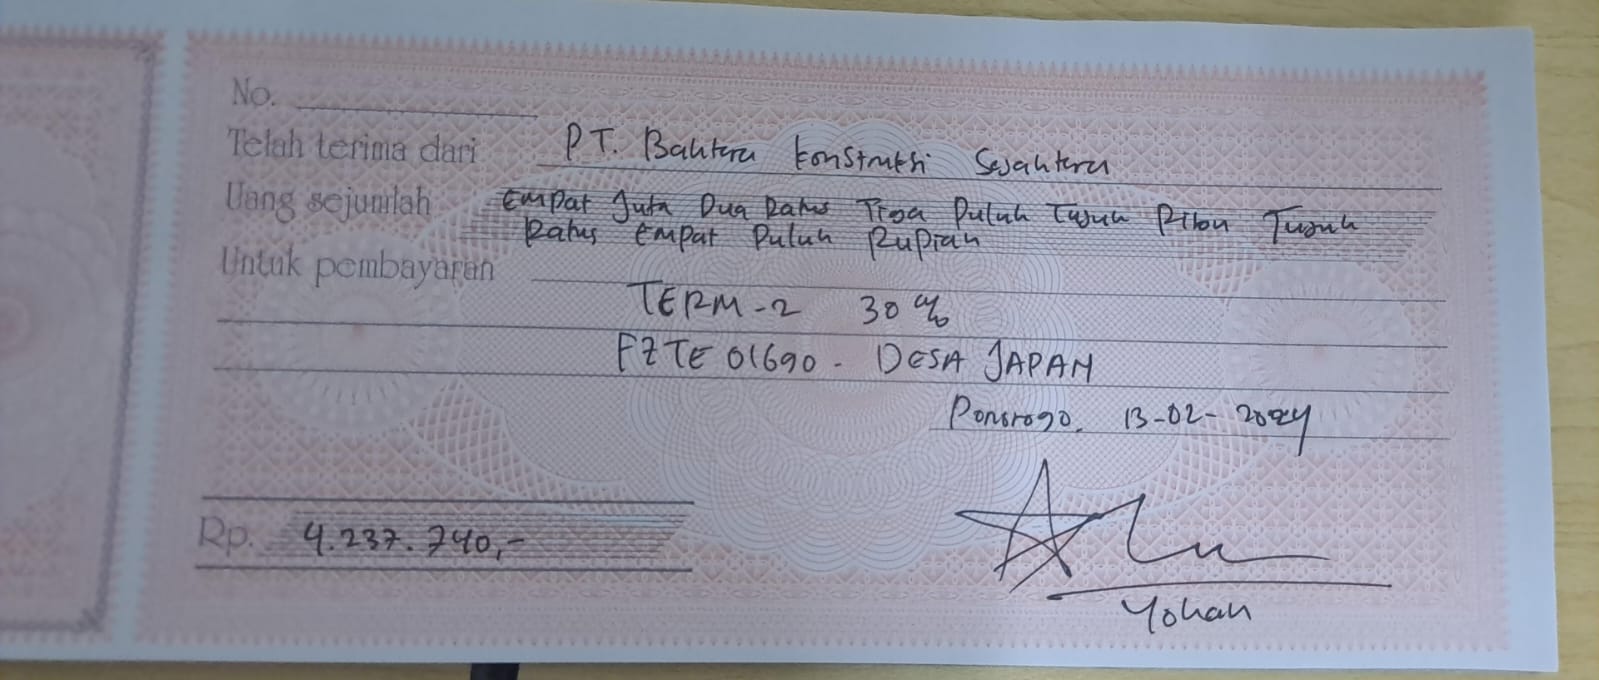 No.
Telah terima dari PT. Bahtera Konstruksi Sejahtera
Uang sejumlah Empat Juta Dua Ratus Tiga Puluh Tujuh Ribu Tujuh
Ratus Empat Puluh Rupiah
Untuk pembayaran
TERM-2 30%
FZTE 01690 - DESA JAPAN
Ponorogo, 13-02-2024
Rp. 4.237.740,-
Yohan